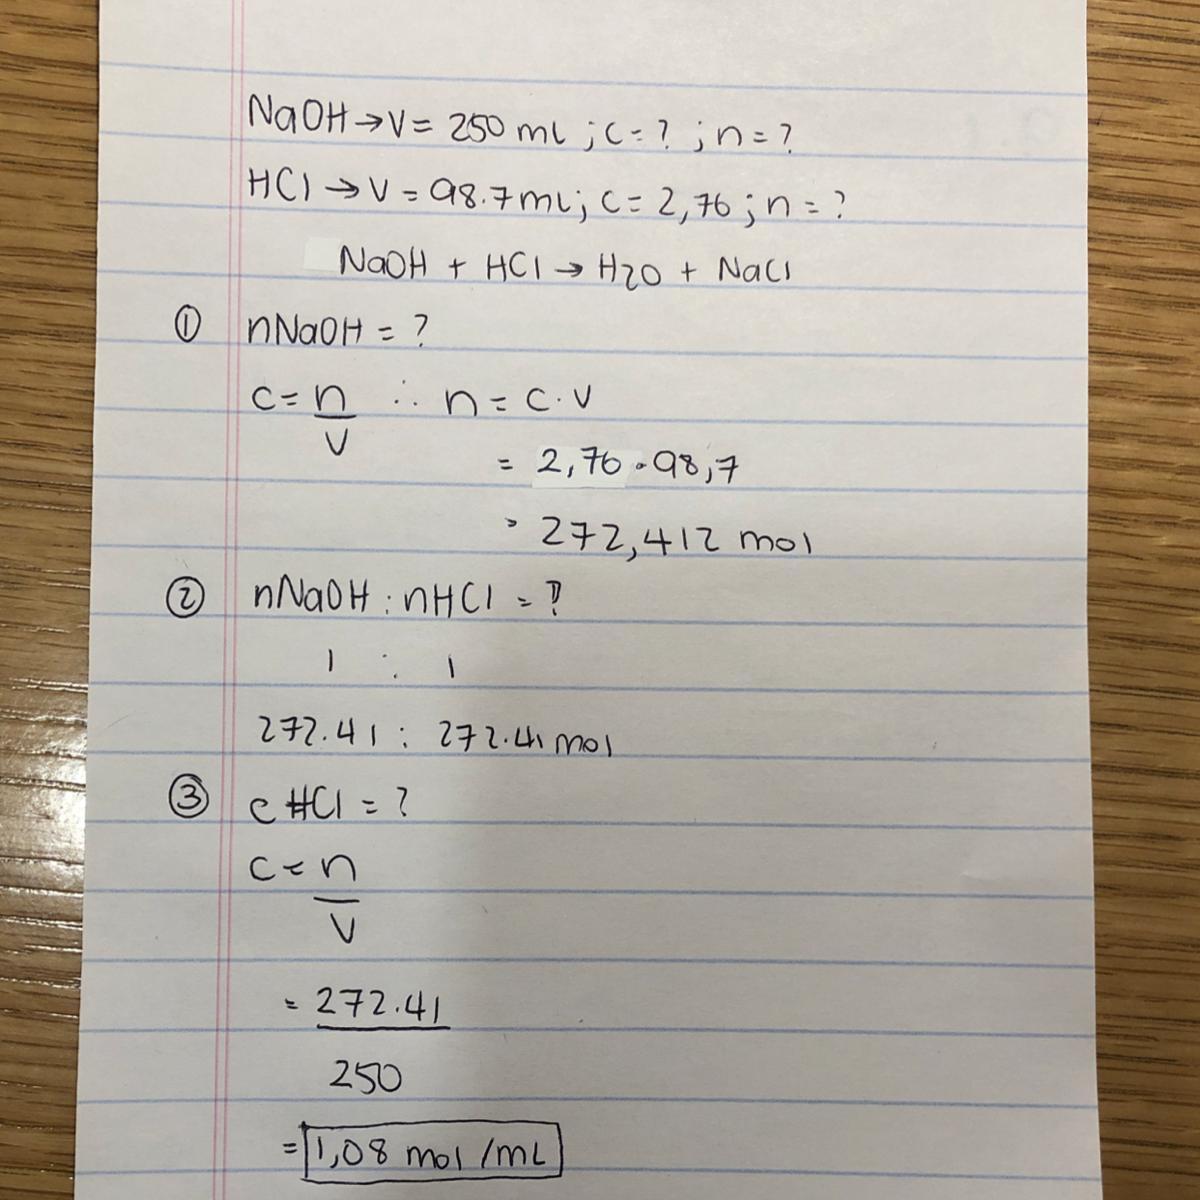 NaOH → V = 250 mL ; c = ? ; n = ?
HCl → V = 98.7 mL; c = 2,76 ; n = ?
NaOH + HCl → H2O + NaCl
① nNaOH = ?
c = n/V ∴ n = c . V
= 2,76 . 98,7
= 272,412 mol
② nNaOH : nHCl = ?
1 : 1
272.41 : 272.41 mol
③ c HCl = ?
c = n
V
= 272.41
250
= 1,08 mol /mL